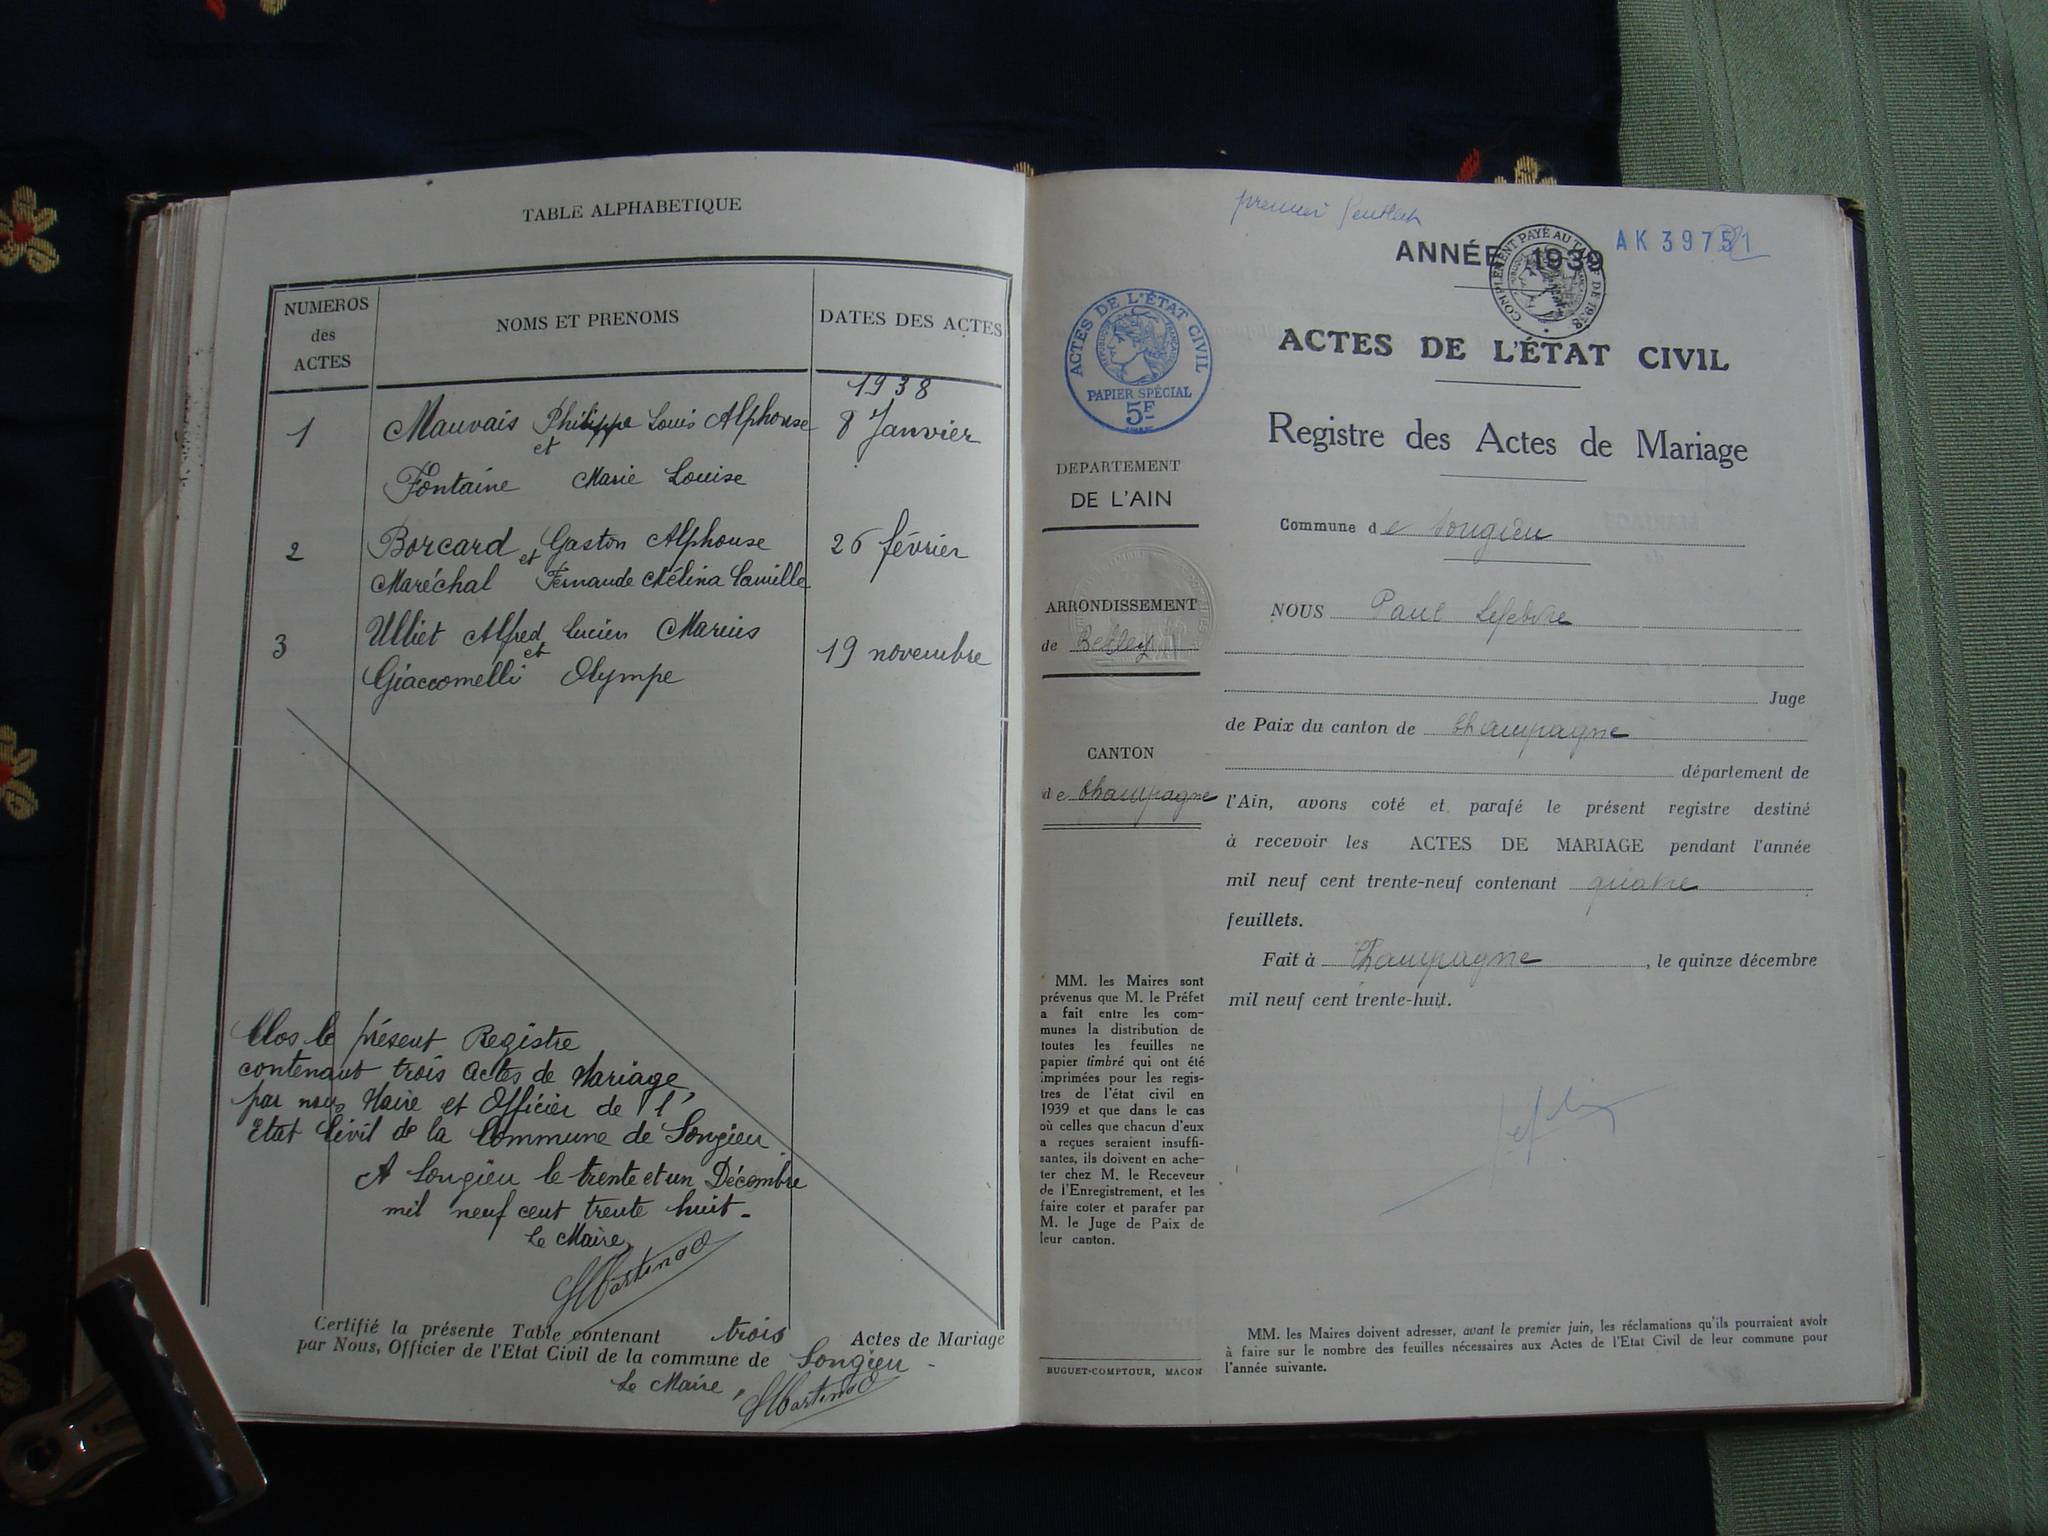 TABLE ALPHABETIQUE
NUMEROS
des
ACTES
NOMS ET PRENOMS
DATES DES ACTES
1938
1
Mauvais Philippe Louis Alphonse
8 Janvier
et
Fontaine Marie Louise
2
Borcard Gaston Alphonse
26 février
et
Maréchal Fernande Mélina Camille
3
Ulliet Alfred Lucien Marius
19 novembre
et
Giaccomelli Olympe
Clos le présent Registre
contenant trois actes de Mariage,
par nous Maire et Officier de l'
Etat Civil de la Commune de Songieu
A Songieu le trente et un Décembre
mil neuf cent trente huit-
Le Maire,
Certifié la présente Table contenant trois Actes de Mariage
par Nous, Officier de l'Etat Civil de la commune de Songieu -
Le Maire,
premier feuillet
ANNÉE 1939
AK 39751
COMPLÉMENT PAYÉ AU TARIF DE 1938
ACTES DE L'ÉTAT CIVIL
RÉPUBLIQUE FRANÇAISE
PAPIER SPÉCIAL
5F
ACTES DE L'ÉTAT CIVIL
Registre des Actes de Mariage
DEPARTEMENT
DE L'AIN
Commune de Songieu
ARRONDISSEMENT
de Belley
NOUS Paul Lefebvre
Juge
de Paix du canton de Champagne
CANTON
de Champagne
département de
l'Ain, avons coté et parafé le présent registre destiné
à recevoir les ACTES DE MARIAGE pendant l'année
mil neuf cent trente-neuf contenant quatre
feuillets.
Fait à Champagne, le quinze décembre
mil neuf cent trente-huit.
MM. les Maires sont
prévenus que M. le Préfet
a fait entre les com-
munes la distribution de
toutes les feuilles ne
papier timbré qui ont été
imprimées pour les regis-
tres de l'état civil en
1939 et que dans le cas
où celles que chacun d'eux
a reçues seraient insuffi-
santes, ils doivent en ache-
ter chez M. le Receveur
de l'Enregistrement, et les
faire coter et parafer par
M. le Juge de Paix de
leur canton.
BUGUET-COMPTOUR, MACON
MM. les Maires doivent adresser, avant le premier juin, les réclamations qu'ils pourraient avoir
à faire sur le nombre des feuilles nécessaires aux Actes de l'Etat Civil de leur commune pour
l'année suivante.